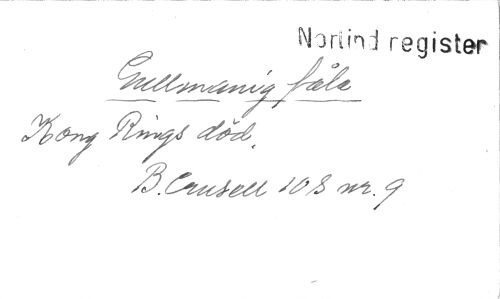 Norlind register
Gullmanig fåle
Kong Rings död.
B. Crusell 10 S nr. 9